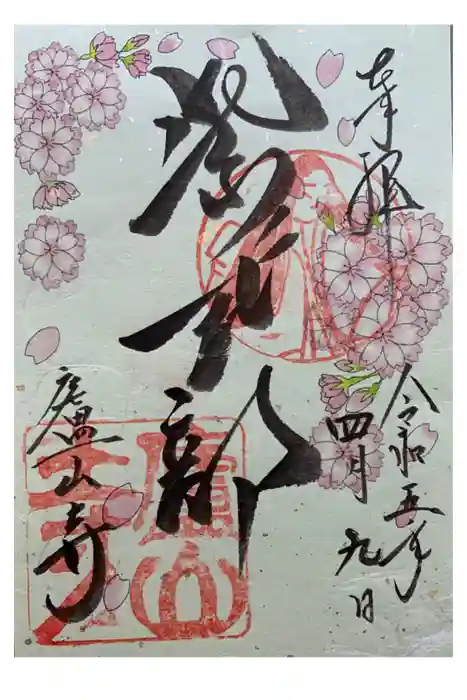 奉拝
令和五年
四月九日
紫式部
廬山寺
廬山
寺